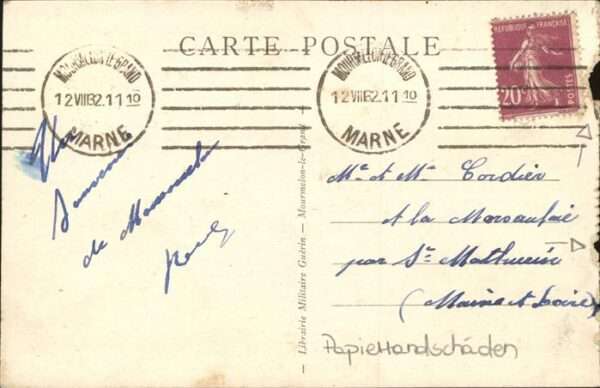 CARTE POSTALE
MOURMELON-LE-GRAND
12 VIII 32.11 10
MARNE
MOURMELON-LE-GRAND
12 VIII 32.11 10
MARNE
REPUBLIQUE FRANÇAISE
20c
POSTES
Un
Souvenir
de Mourmelon
Mr et Me Cordier
à la
par St Mathurin
(Maine et Loire)
— Librairie Militaire Guérin — Mourmelon-le-Grand —
Papierrandschäden